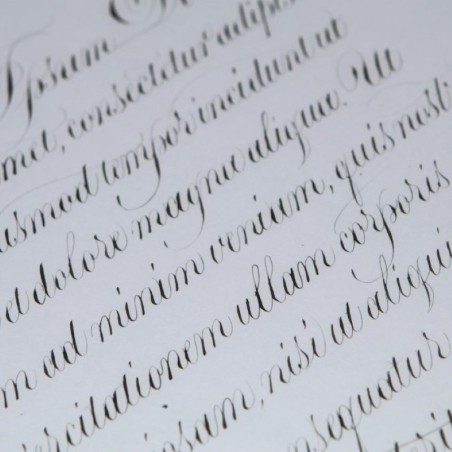 Ipsum
met, consectetur adipis
usmod tempor incididunt ut
et dolore magna aliqua. Ut
m ad minim veniam, quis nost
ercitationem ullam corporis
iosam, nisi ut aliqui
nsequatur